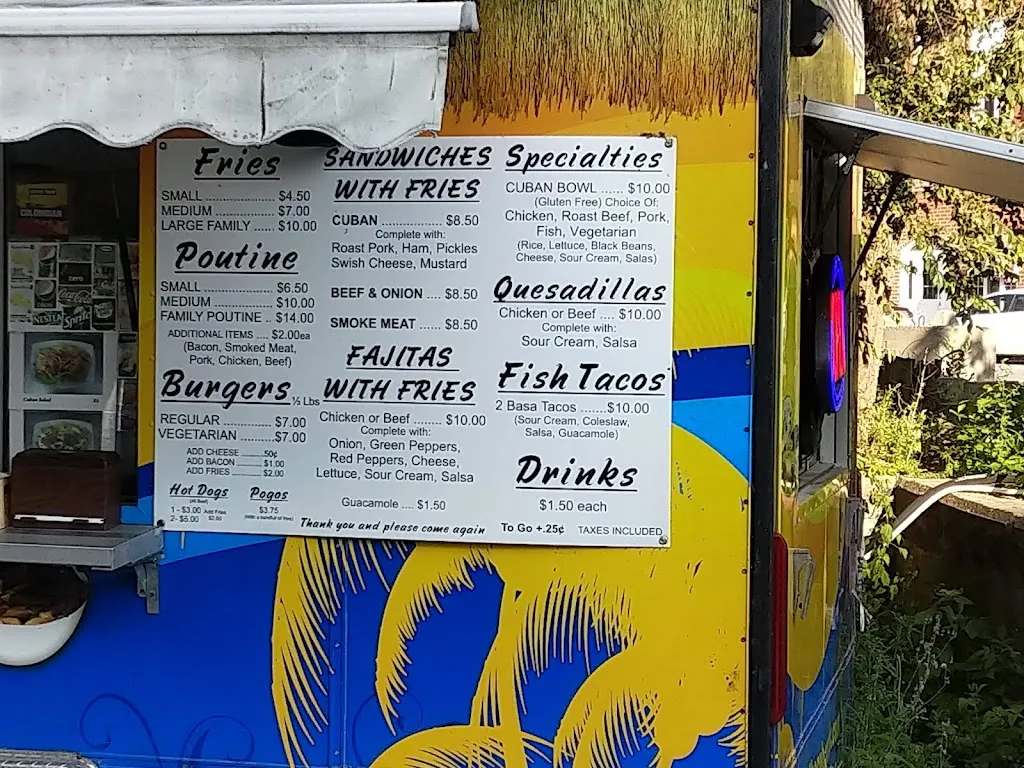 Fries
SMALL ......................... $4.50
MEDIUM ...................... $7.00
LARGE FAMILY ...... $10.00
Poutine
SMALL ......................... $6.50
MEDIUM ...................... $10.00
FAMILY POUTINE .. $14.00
ADDITIONAL ITEMS .... $2.00ea
(Bacon, Smoked Meat,
Pork, Chicken, Beef)
Burgers ½ Lbs
REGULAR .................. $7.00
VEGETARIAN ..........$7.00
ADD CHEESE ........... 50¢
ADD BACON ........... $1.00
ADD FRIES .............. $2.00
Hot Dogs
(All Beef)
1 - $3.00 Add Fries
2- $5.00 $2.00
Pogos
$3.75
SANDWICHES
WITH FRIES
CUBAN ..................... $8.50
Complete with:
Roast Pork, Ham, Pickles
Swish Cheese, Mustard
BEEF & ONION .... $8.50
SMOKE MEAT ...... $8.50
FAJITAS
WITH FRIES
Chicken or Beef ........ $10.00
Complete with:
Onion, Green Peppers,
Red Peppers, Cheese,
Lettuce, Sour Cream, Salsa
Guacamole .... $1.50
Thank you and please come again
Specialties
CUBAN BOWL ...... $10.00
(Gluten Free) Choice Of:
Chicken, Roast Beef, Pork,
Fish, Vegetarian
(Rice, Lettuce, Black Beans,
Cheese, Sour Cream, Salas)
Quesadillas
Chicken or Beef .... $10.00
Complete with:
Sour Cream, Salsa
Fish Tacos
2 Basa Tacos .......$10.00
(Sour Cream, Coleslaw,
Salsa, Guacamole)
Drinks
$1.50 each
To Go +.25¢ TAXES INCLUDED
COLOMBIAN
zero
Coca-Cola
NESTEA
Sprite